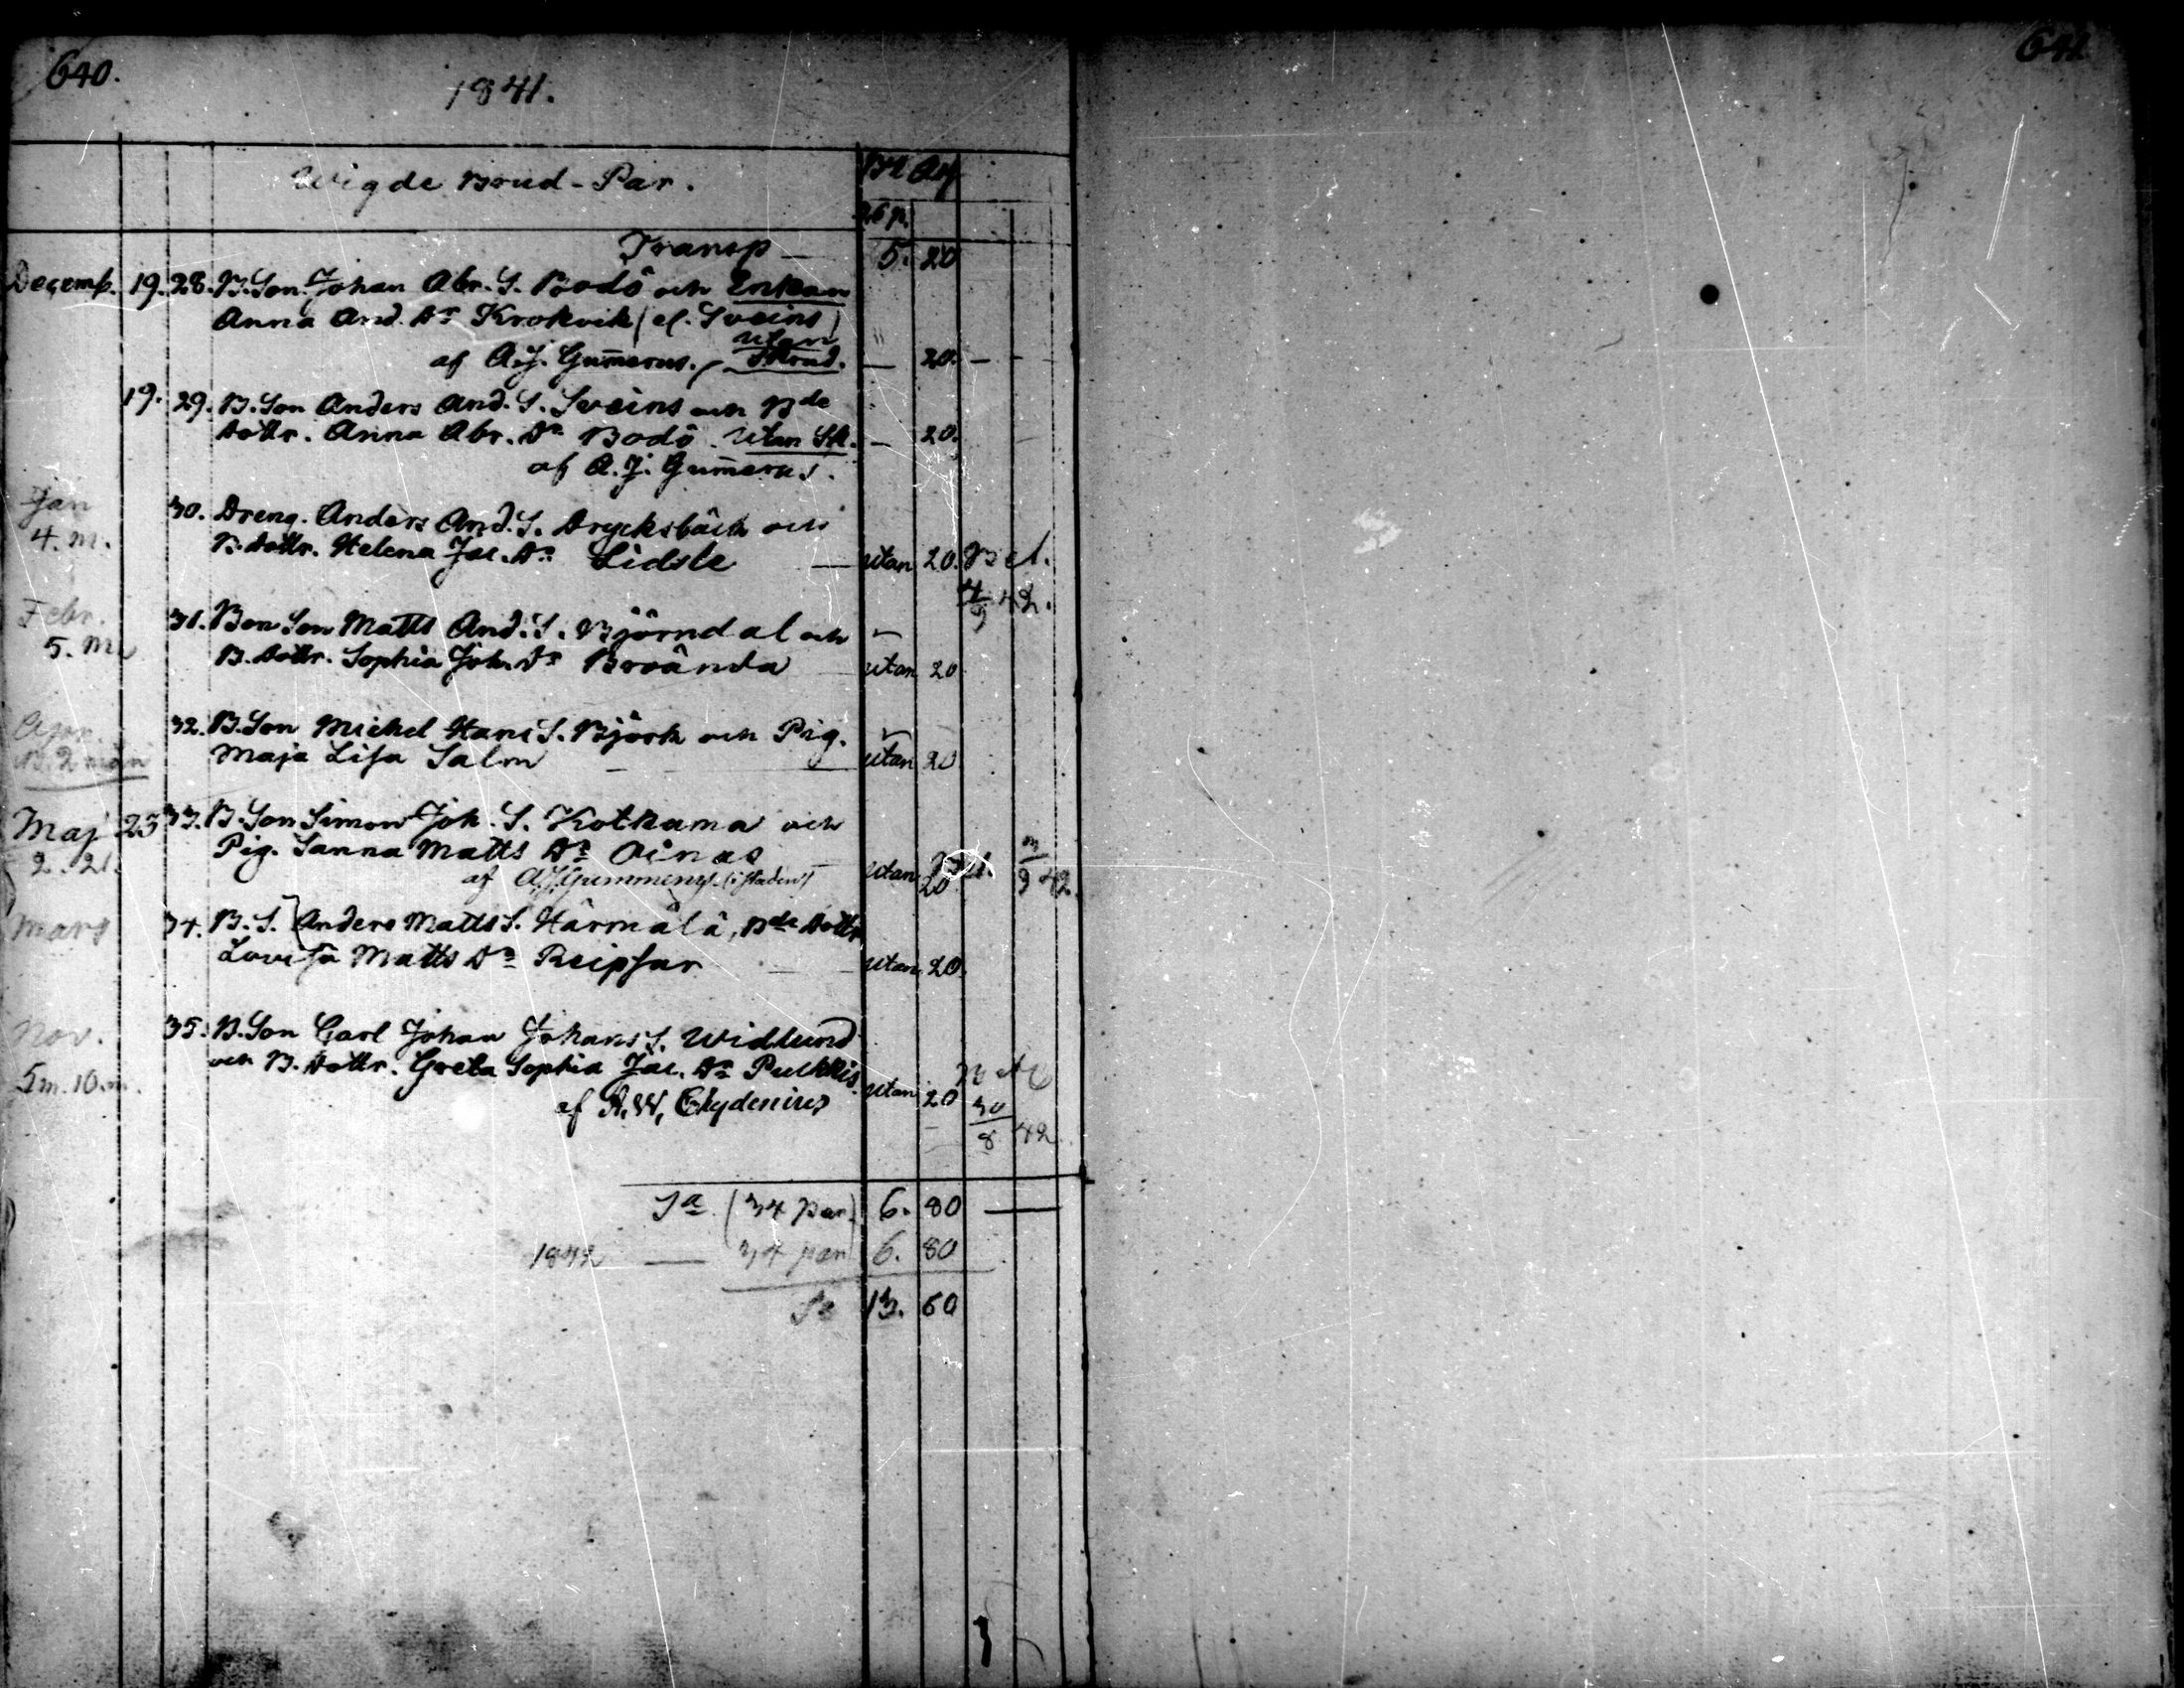 640.
641
1841.
Wigde Brud-Par.
Transp — 5. 20
Decemb. 19. 28. B. Son Johan Abr. S. Bodö och Enkan
Anna And. Dr Krokvik (el. Sveins)
utan
af A.J. Gum̄erus. Skrud. — 20. —
19. 29. B. Son Anders And. S. Sveins och Bde
Dottr. Anna Abr. Dr Bodö. Utan Sk. — 20.
af A.J. Gum̄erus.
Jan 30. Dreng. Anders And. S. Drycksbäck och
4. m. B. Dottr. Helena Jac. Dr Lidsle — utan 20. Bet.
42.
Febr. 31. Bon Son Matts And. S. Björndal och
5. m B. Dottr. Sophia Joh. Dr Broända utan 20
Apr. 32. B. Son Michel Hans S. Björk och Pig.
2 mån Maja Lisa Salm — utan 20
Maj 23 33. B. Son Simon Joh. S. Kotkama och
2. 21. Pig. Sanna Matts Dr Oinas utan 20
af A.J. Gummerus (i staden) 42
Mars 34. B. S. Anders Matts S. Härmälä, Bde Dottr
Lovisa Matts Dr Reipsar — utan 20.
Nov. 35. B. Son Carl Johan Johans S. Widlund
5 m. 10. m. och B. Dottr. Greta Sophia Jac. Dr Pulkkis. utan 20
af A.W. Chydenius 30/8 42
Sa (34 par) 6. 80 —
1842 — 34 par 6. 80
Sa 13. 60